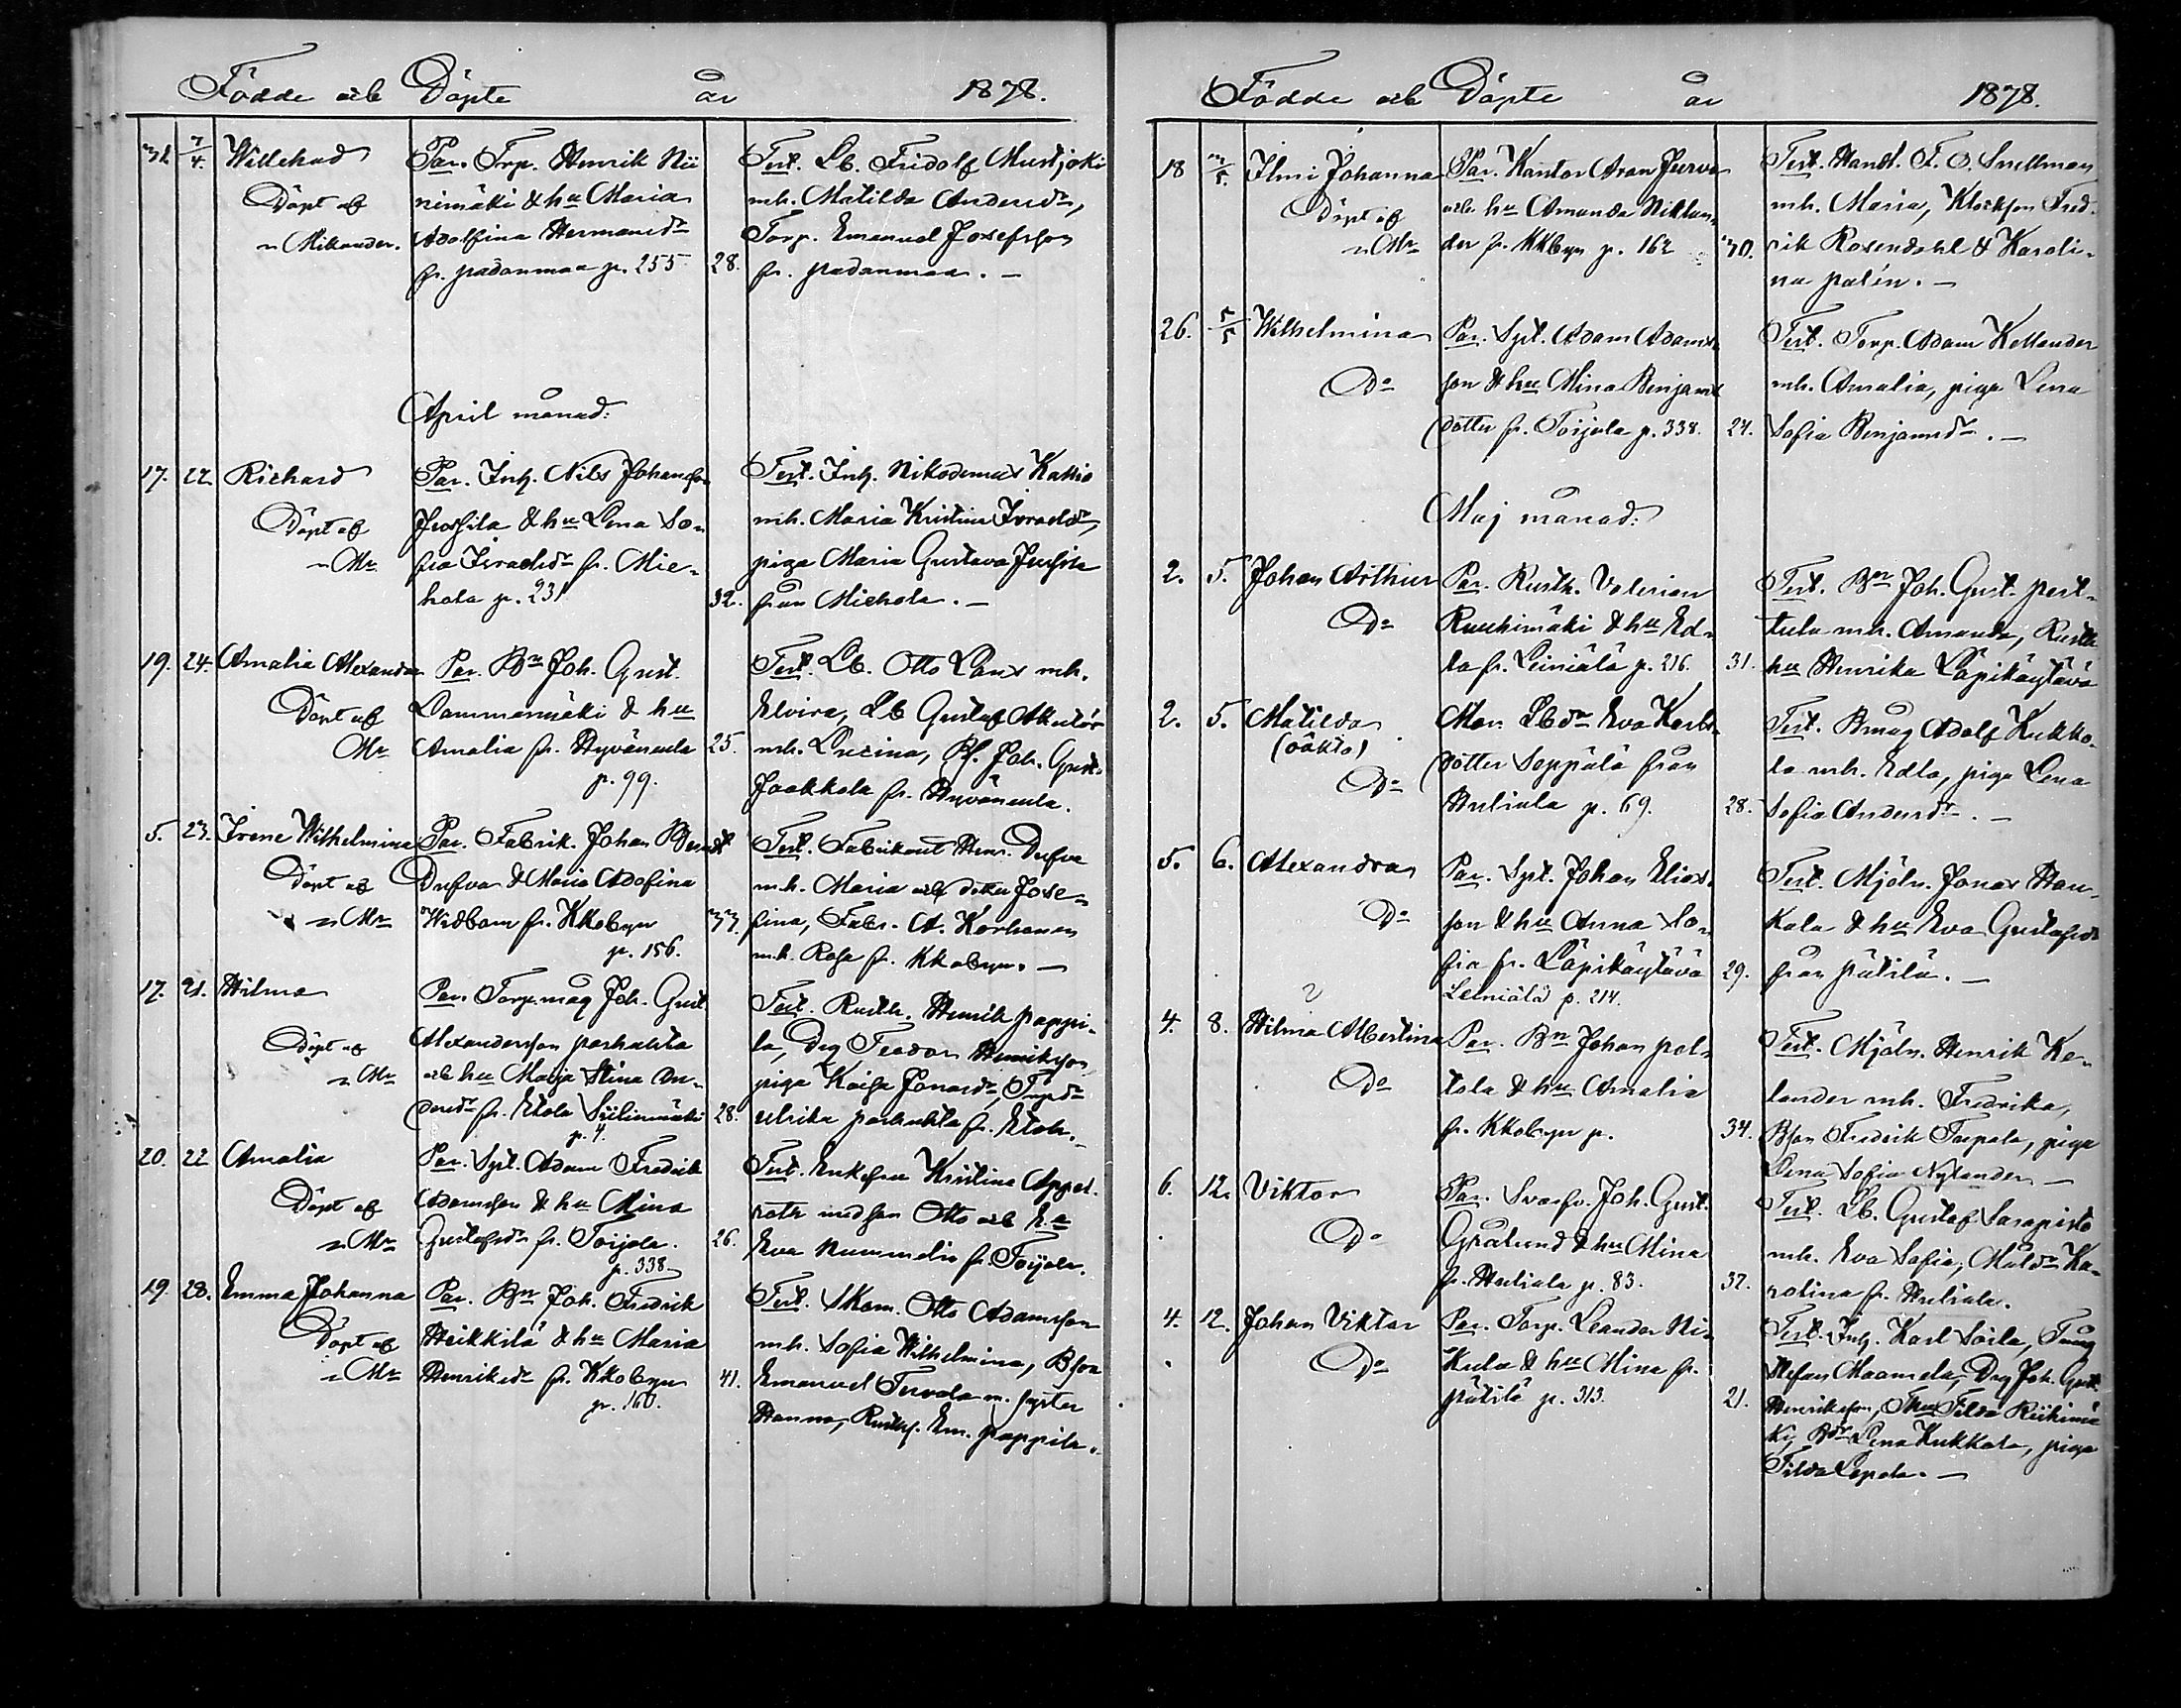 Födde och Döpte år 1878.
31. 7/4. Willehad
Döpt af
Mikander.
Par. Torp. Henrik Nii
nimäki & hu Maria
Adolfina Hermansdr
fr. Padanmaa p. 255
28.
Test. Lb. Fridolf Mustjoki
mh. Matilda Andersdr,
Torp. Emanuel Josefsson
fr. Padanmaa. —
April månad:
17. 22 Richard
Döpt af
Mr
Par. Inh. Nils Johansson
Jussila & hu Lena So-
fia Israelsdr fr. Mie-
hola p. 231
32.
Test. Inh. Nikodemus
mh. Maria Kristina Israelsdr,
piga Maria Gustava Jussila
från Miehola. —
19. 24. Amalia Alexandra
Döpt af
Mr
Par. Bn Joh. Gust.
Lammenmäki & hu
Amalia fr. Hyväneula
p. 99.
25.
Test. Lb. Otto Lans mh.
Elvira, Lb Gustaf
mh. Lucina, Bs. Joh. Gust.
Jaakkola fr. Hyväneula.
5. 23. Irene Wilhelmina
Döpt af
Mr
Par. Fabrik. Johan Berndt
Dufva & Maria Adofina
Widbom fr. Kkobyn
p. 156.
33.
Test. Fabrikant Henr. Dufva
mh. Maria och dotter Jose-
fina, Fabr. A. Korhonen
mh. Rosa fr. Kkobyn. —
17. 21. Hilma
Döpt af
Mr
Par. Torp.måg Joh. Gust
Alexandersson Parhalahta
och hu Maija Stina An-
dersdr fr. Etola Siilinmäki
p. 4.
28.
Test. Rusth. Henrik Pappi-
la, Drg Teodor Henriksson
piga Kaisa Jonasdr, Torpdr
Ulrika fr. Etola.
20. 22 Amalia
Döpt af
Mr
Par. Syt. Adam Fredrik
Adamsson & hu Mina
Gustafsdr fr. Toijola.
p. 338
26.
Test. Enkefru Kristina Appel-
roth med son Otto och
Eva Nummelin fr. Toijola.
19. 28. Emma Johanna
Döpt af
Mr
Par. Bn Joh. Fredrik
Heikkilä & hu Maria
Henriksdr fr. Kkobyn
p. 160.
41.
Test. Skom. Otto Adamsson
mh. Sofia Wilhelmina, Bson
Emanuel Tervola m. syster
Hanna, Rusths. Em. Pappila.
Födde och Döpte år 1878.
18 3/5. Ilmi Johanna
Döpt af
Mr
Par. Kantor Aron Jurva
och hu Amanda Niklan-
der fr. Kkbyn p. 162
30.
Test. Handl. F. O. Snellman
mh. Maria, Klockson Fred-
rik Rosendahl & Karoli-
na Palén. —
26. 5/5 Wilhelmina
Do
Par. Syt. Adam Adams-
son & hu Mina Benjams
dotter fr. Toijola p. 338.
24.
Test. Torp. Adam Kellander
mh. Amalia, piga Lena
Sofia Benjamsdr. —
Maj månad:
2. 5. Johan Arthur
Do
Par. Rusth. Valerian
Ruuhimäki & hu Ed-
la fr. Leiniälä p. 216.
31.
Test. Bn Joh. Gust. Pert-
tula mh. Amanda, Rusth
hu Henrika Läpikäytävä
2. 5. Matilda
(oäkta)
Do
Mor. Lbdr Eva Karls-
dotter Seppälä från
Huliala p. 69.
28.
Test. Bmåg Adolf Kukko-
la mh. Edla, piga Lena
Sofia Andersdr. —
5. 6. Alexandra
Do
Par. Syt. Johan Elias-
son & hu Anna So-
fia fr. Läpikäytävä
Leiniälä p. 214.
29.
Test. Mjöln. Jonas Han-
kala & hu Eva Gustafsdr
från Pätilä. —
4. 8. Hilma Albertina
Do
Par. Bn Johan Pal-
tola & hu Amalia
fr. Kkobyn p.
34.
Test. Mjöln. Henrik Ke-
lander mh. Fredrika,
Bson Fredrik Torpola, piga
Lena Sofia Nylander —
6. 12. Viktor
Do
Par. Svarfv. Joh. Gust.
Grålund & hu Mina
fr. Huliala p. 83.
32.
Test. Lb. Gustaf Sarapisto
mh. Eva Sofia, Ka-
rolina fr. Huliala.
4. 12. Johan Viktor
Do
Par. Torp. Leander Ni-
kula & hu Mina fr.
Pätilä p. 313.
21.
Test. Inh. Karl Sorla, Tmåg
Stefan Maamela, Drg Joh. Gust.
Henriksson, Thu Tilda Riihimä
ki, Bdr Lena Kukkola, piga
Tilda Lepola. —